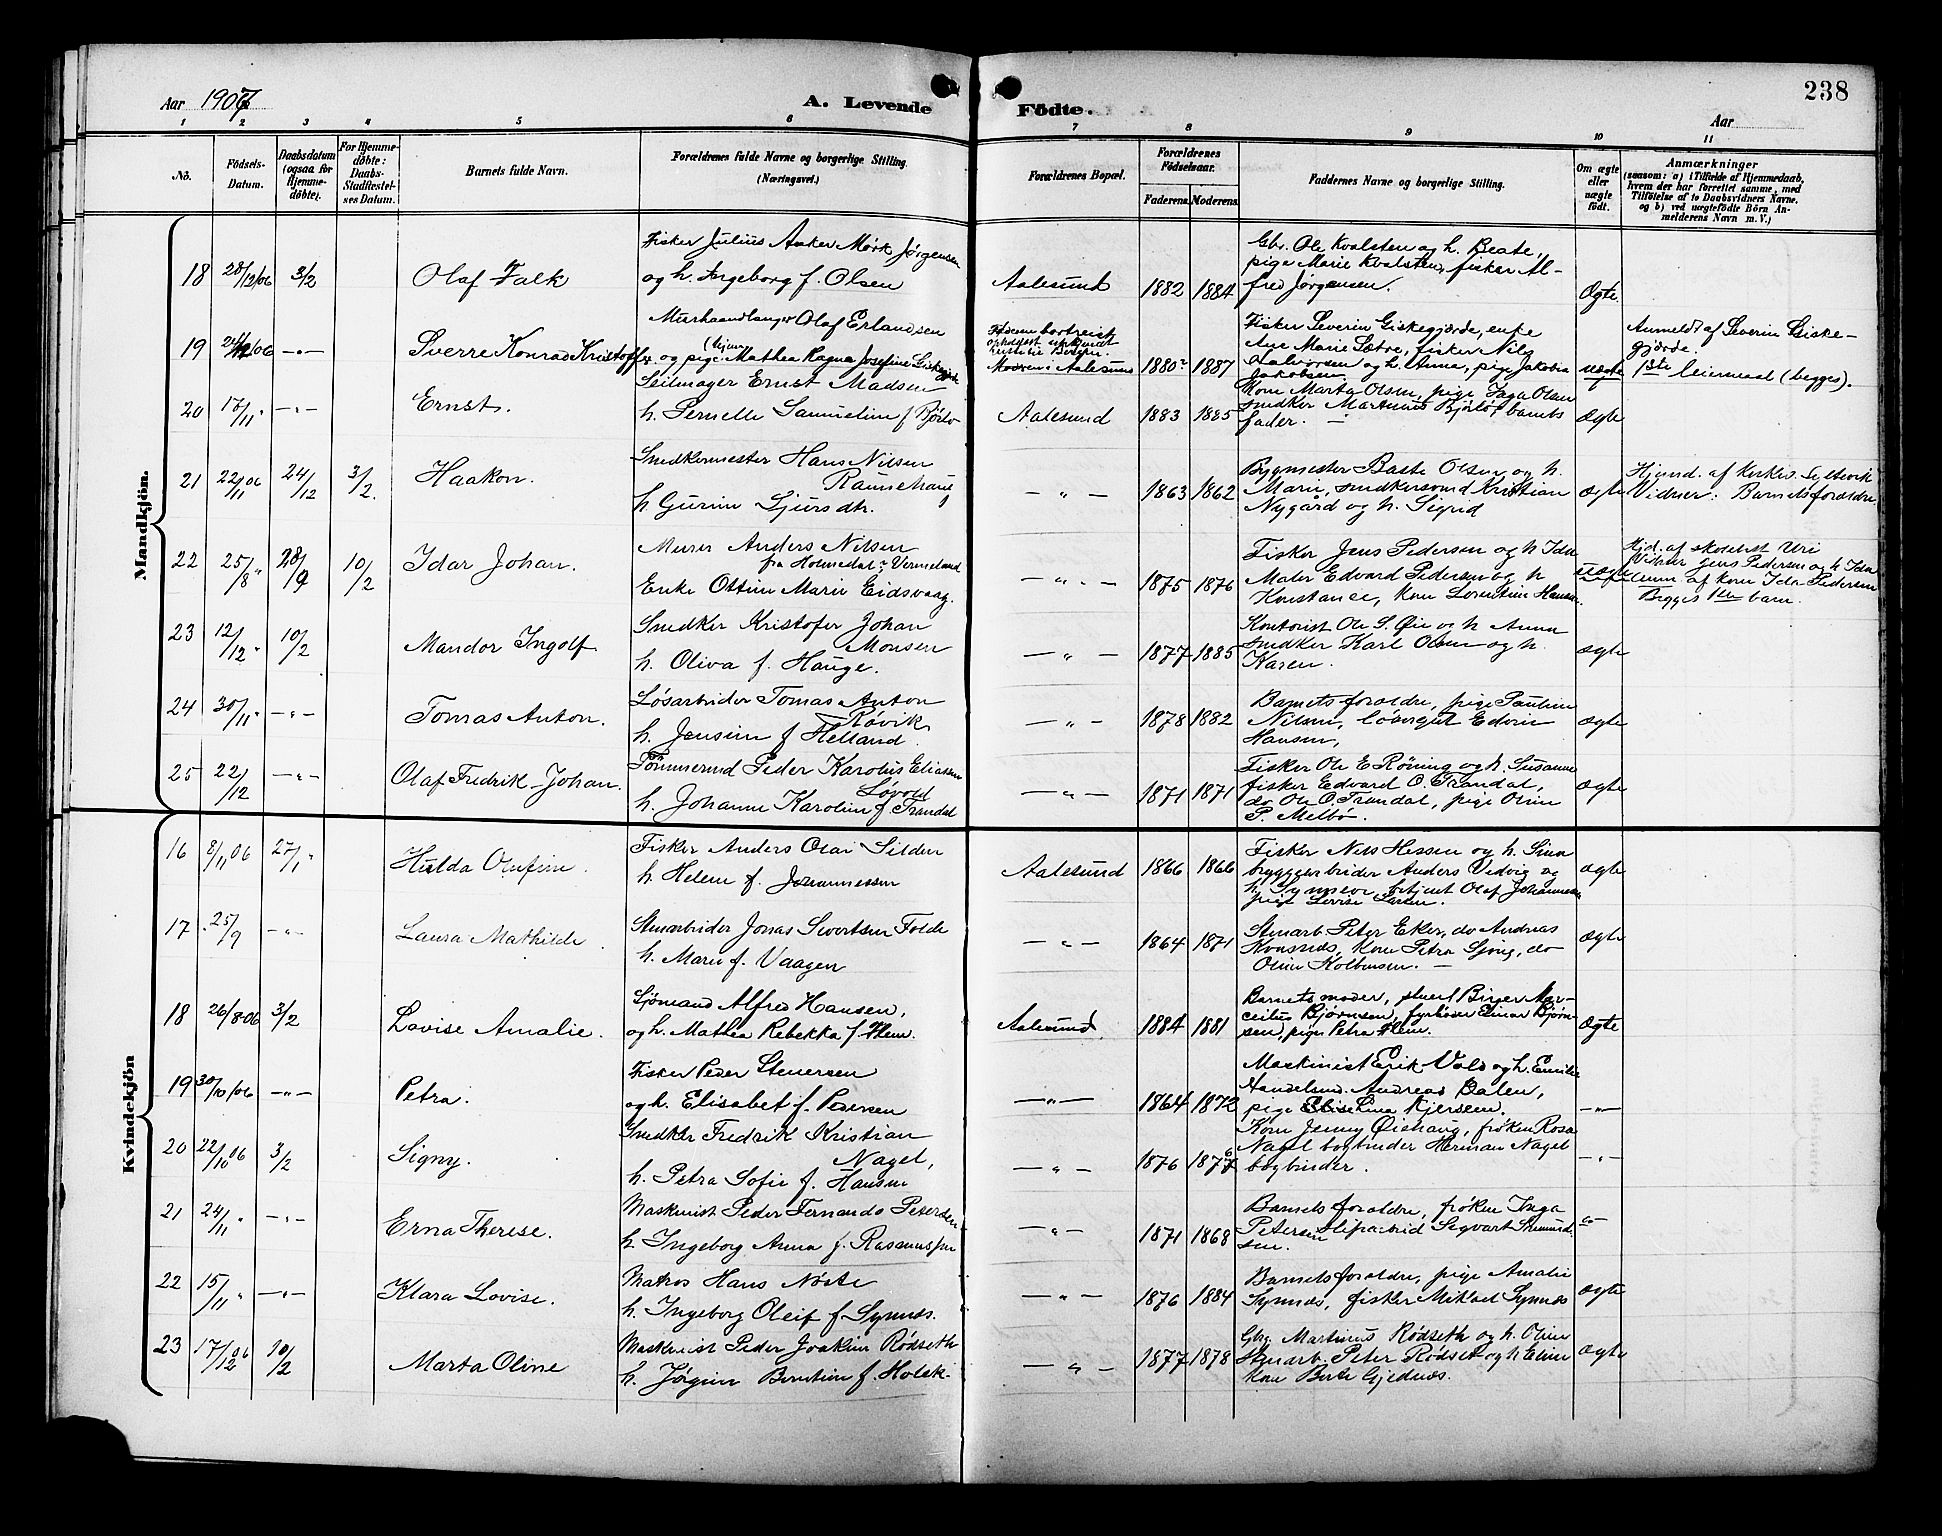 Aar 1907
A. Levende Födte.
238
Aar
1 2 3 4 5 6 7 8 9 10 11
No.
Födsels-Datum.
Daabsdatum (ogsaa for Hjemmedöbte).
For Hjemmedöbte: Daabs-Stadfæstelses Datum.
Barnets fulde Navn.
Forældrenes fulde Navne og borgerlige Stilling.
(Næringsvei.)
Forældrenes Bopæl.
Forældrenes Födselsaar.
Faderens. Moderens.
Faddernes Navne og borgerlige Stilling.
Om ægte eller uægte födt.
Anmærkninger
(saasom: a) i Tilfælde af Hjemmedaab, hvem der har forrettet samme, med Tilföielse af to Daabsvidners Navne, og b) ved uægtefödte Börn Anmelderens Navn m. V.)
Mandkjön.
18 28/12/06 3/2 Olaf Falk
Fisker Julius Anker Mørk Jørgensen
og h. Ingeborg f. Olsen
Aalesund 1882 1884
Gbr. Ole Kvalsten og h. Beate,
pige Marie Kvalsten, fisker Al-
fred Jørgensen.
Ægte
19 06 -"- Sverre Konrad Kristoffer
Murhaandlanger Olaf Erlandsen
og pige Mathea Ragna Josefine Giske
Moderen i Aalesund 1880 1887
Fisker Severin Giskegjerde, enke
Ane Marie Sætre, fisker Nils
og h. Anna, pige Jakobia
Jakobsen
uægte
Anmeldt af Severin Giske-
gjerde.
1ste leiermaal (begges).
20 17/11 " -"- Ernst.
Seilmager Ernst Madsen
h. Pernelle f. Bjørlo
Aalesund 1883 1885
Kone Marta Olsen, pige Inga Olsen
snedker Martinus Bjørlo, barnets
fader.
ægte
21 22/11 06 24/12 3/2. Haakon.
Snedkermester Hans Nilsen
h Gurine Sjursdtr.
-"- 1863 1862
Bygmester Baste Olsen og h.
Marie, snedkersvend Kristian
Nygård og h. Sigrid
ægte
Vidner: Barnets forældre
22 25/8 " 28/9 10/2 Idar Johan.
Murer Anders Nilsen
fra Holmedal, Vermeland
Enke Ottine Marie Eidsvaag.
-"- 1875 1876
Fisker Jens Pedersen og h Ida
Maler Edvard Pedersen og h
Konstance, kone Hansen.
uægte
Hjd. af Uri
Vidner Jens Pedersen og h Ida
af kone Ida Pedersen
Begges 1ste barn.
23 12/12 " 10/2 Mandor Ingolf
Snedker Kristofer Johan
Monsen
h. Oliva f. Hauge.
-"- 1877 1885
Kontorist Ole S. Øie og h Anna
snedker Karl Olsen og h.
Karen.
ægte
24 30/11 " -"- Tomas Anton.
Løsarbeider Tomas Anton
Røvik
h. Jensine f Helland.
-"- 1878 1882
Barnets forældre, pige Pauline
Nilsen, Edvin
Hansen,
ægte
25 22/12 -"- Olaf Fredrik Johan.
Tømmermd Peder Karolus Eliassen
Løvold
h. Johanne Karoline f Trandal
-"- 1871 1871
Fisker Ole E Røning og h. Susanne
fisker Edvard O. Trandal,
do Ole O. Trandal, pige Oline
P. Melbø.
ægte
Kvindekjön
16 8/11 06 27/1 " Hulda Olufine.
Fisker Anders Olai Silden
h. Helene f. Johannessen
Aalesund 1866 1866
Fisker Nils Hessen og h. Sina
bryggearbeider Anders Vedvig og
h. Synneve, betjent Olaf Johannessen
pige Lovise Larsen.
ægte
17 25/9 -"- Laura Mathilde.
Stenarbeider Jonas Sivertsen Folde
h. Marie f. Vaagen
-"- 1864 1871
Stenarb Peter Eker, do Andreas
Kvasnæs, kone Petra Sjong, do
Oline Kolbensen.
ægte
18 26/8-06 3/2 Lovise Amalie.
Sjømand Alfred Hansen,
og h. Mathea Rebekka f. Hlem.
Aalesund 1884 1881
Barnets moder, stuert Birger Mar-
celius Bjørnsen, fyrbøder Einar Bjørn-
sen, pige Petra Hlem.
Ægte
19 30/10/06 -"- Petra.
Fisker Peder Stenersen
og h. Elisabet f. Pedersen
-"- 1864 1872
Maskinist Erik Vold og h. Emilie
Handelsmd. Andreas Dalen,
pige Lina Kjersem.
-"-
20 22/10 06 3/2 Signy.
Snedker Fredrik Kristian
Nagel,
h. Petra Sofie f. Hansen
-"- 1876 1877
Kone Jenny Øiehaug, frøken Rosa
Nagel bogbinder Herman Nagel
bogbinder.
-"-
21 24/11 " -"- Erna Therese.
Maskinist Peder Fernando Petersen
h. Ingeborg Anna f. Rasmussen
-"- 1871 1868
Barnets forældre, frøken Inga
Petersen Sigvart
sen.
22 15/11 " -"- Klara Lovise.
Matros Hans Nøste
h. Ingeborg Oleif f Synnes.
-"- 1876 1884
Barnets forældre, pige Amalie
Synnes, fisker Mikael Synnes
ægte
23 17/12 06 10/2 Marta Oline
Maskinist Peder Joakim Rødseth
h. Jørgine Berntine f. Holsk.
-"- 1877 1878
Gbr. Martinus Rødseth og h. Oline
Stenarb. Peter Rødset og h Eline
kone Berte Gjednes.
ægte